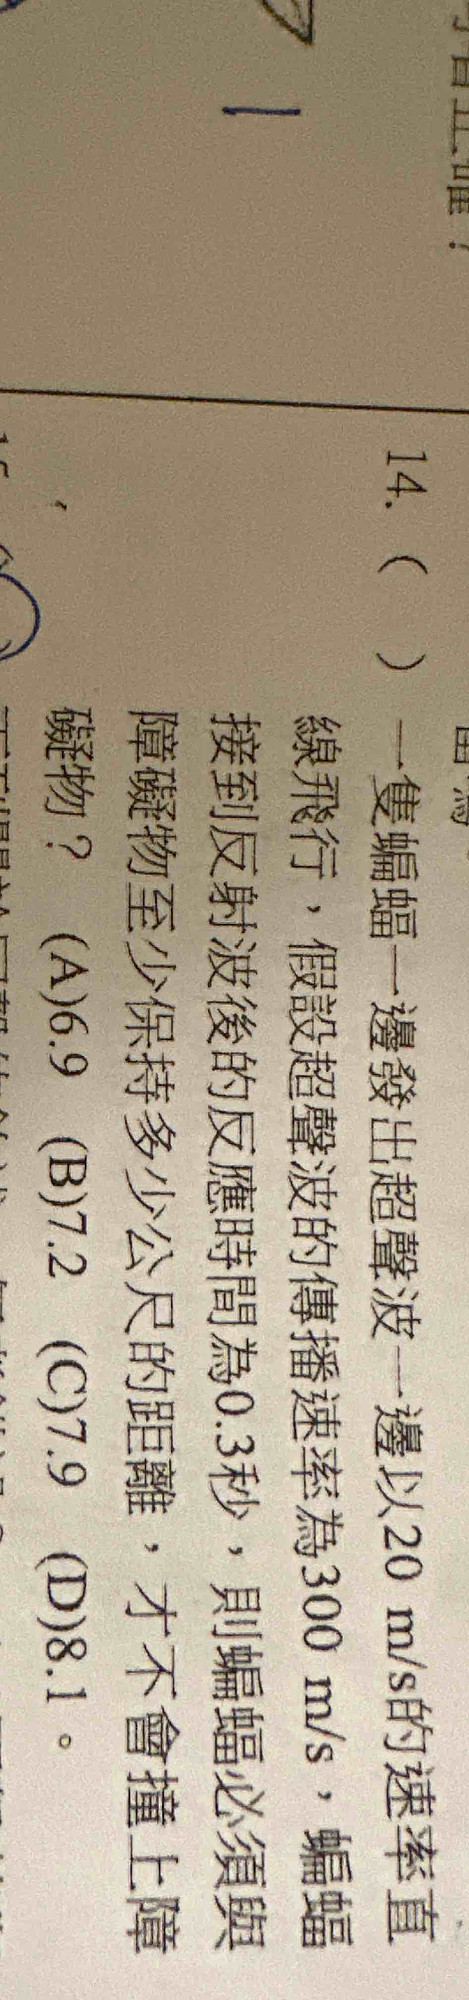 14. (　　) 一隻蝙蝠一邊發出超聲波一邊以20 m/s的速率直
線飛行，假設超聲波的傳播速率為300 m/s，蝙蝠
接到反射波後的反應時間為0.3秒，則蝙蝠必須與
障礙物至少保持多少公尺的距離，才不會撞上障
礙物？ (A)6.9 (B)7.2 (C)7.9 (D)8.1。